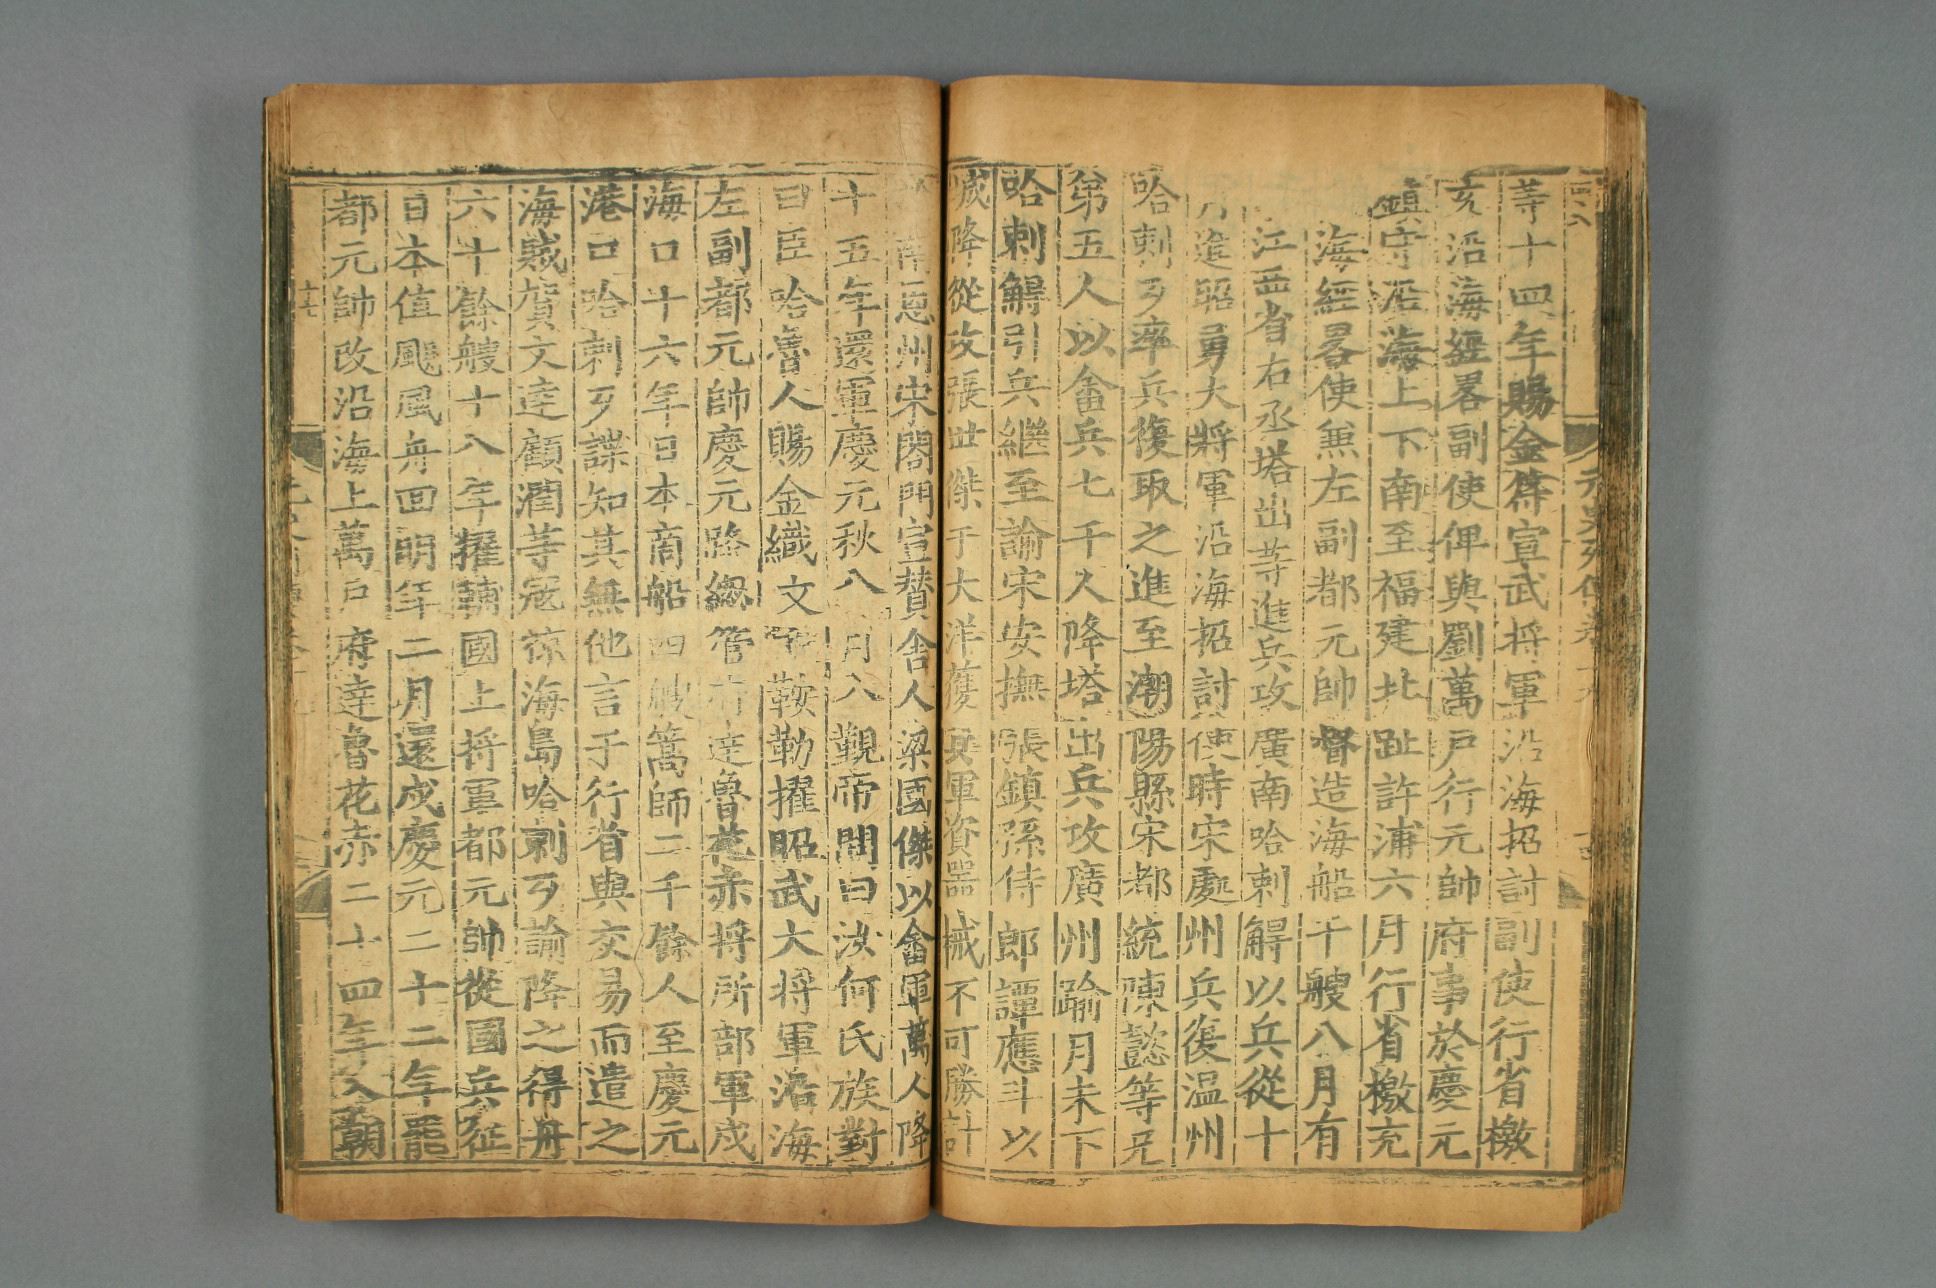 等十四年賜金符宣武將軍沿海招討副使行省檄
充沿海經畧副使俾與劉萬戶行元帥府事於慶元
鎮守沿海上下南至福建北趾許浦六月行省檄充
海經畧使無左副都元帥督造海船千艘八月有
江西省右丞塔出等進兵攻廣南哈剌䚟以兵從十
月進昭勇大將軍沿海招討使時宋處州兵復温州
哈剌歹率兵復取之進至潮陽縣宋都統陳懿等兄
第五人以畲兵七千人降塔出兵攻廣州踰月未下
哈剌䚟引兵繼至諭宋安撫張鎮孫侍郎譚應斗以
城降從攻張世傑于大洋獲其軍資器械不可勝計
南恩州宋閤門宣贊舍人梁國傑以畲軍萬人降
十五年還軍慶元秋八月入覲帝問曰汝何氏族對
曰臣哈魯人賜金織文衣鞍勒擢昭武大將軍沿海
左副都元帥慶元路緫管府達魯花赤將所部軍戍
海口十六年日本商船四艘篙師二千餘人至慶元
港口哈剌歹諜知其無他言于行省與交易而遣之
海賊賀文達顧潤等寇掠海島哈剌歹諭降之得舟
六十餘艘十八年擢輔國上將軍都元帥從國兵征
日本值颶風舟囬明年二月還戍慶元二十二年罷
都元帥改沿海上萬戶府達魯花赤二十四年入朝